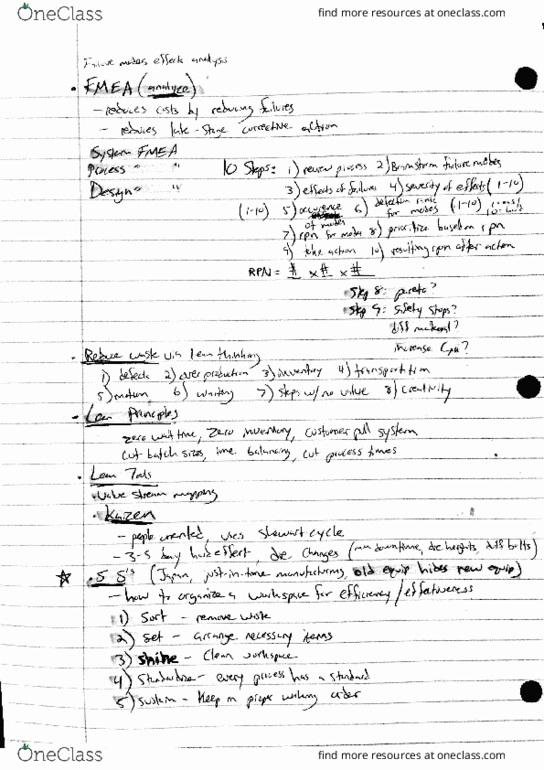 OneClass
find more resources at oneclass.com
Failure modes effects analysis
• FMEA (analyze)
- reduces costs by reducing failures
- reduces late-stage corrective action
System FMEA
Process " "
Design " "
10 Steps: 1) review process 2) Brainstorm failure modes
3) effects of failures 4) severity of effects (1-10)
(1-10) 5) occurence of modes 6) detection for modes (1-10)
7) rpn for modes 8) prioritize based on rpn
9) take action 10) resulting rpn after action
RPN = # x # x #
Step 8: pareto?
Step 9: safety stops?
diff material?
increase Cpk?
• Reduce waste via lean thinking
1) defects 2) over production 3) inventory 4) transportation
5) motion 6) waiting 7) steps w/no value 8) creativity
• Lean Principles
zero wait time, zero inventory, customer pull system
cut batch sizes, line balancing, cut process times
• Lean Tools
• Value stream mapping
• Kaizen
- people oriented, uses shewart cycle
- 3-5 day , die changes (min downtime, die heights, diff bolts)
☆ • 5 S's (Japan, just-in-time manufacturing, old equip hides new equip)
- how to organize a workspace for efficiency/effectiveness
1) Sort - remove waste
2) Set - arrange necessary items
3) shine - Clean workspace
4) Standardize - every process has a standard
5) Sustain - Keep in proper working order
OneClass
find more resources at oneclass.com